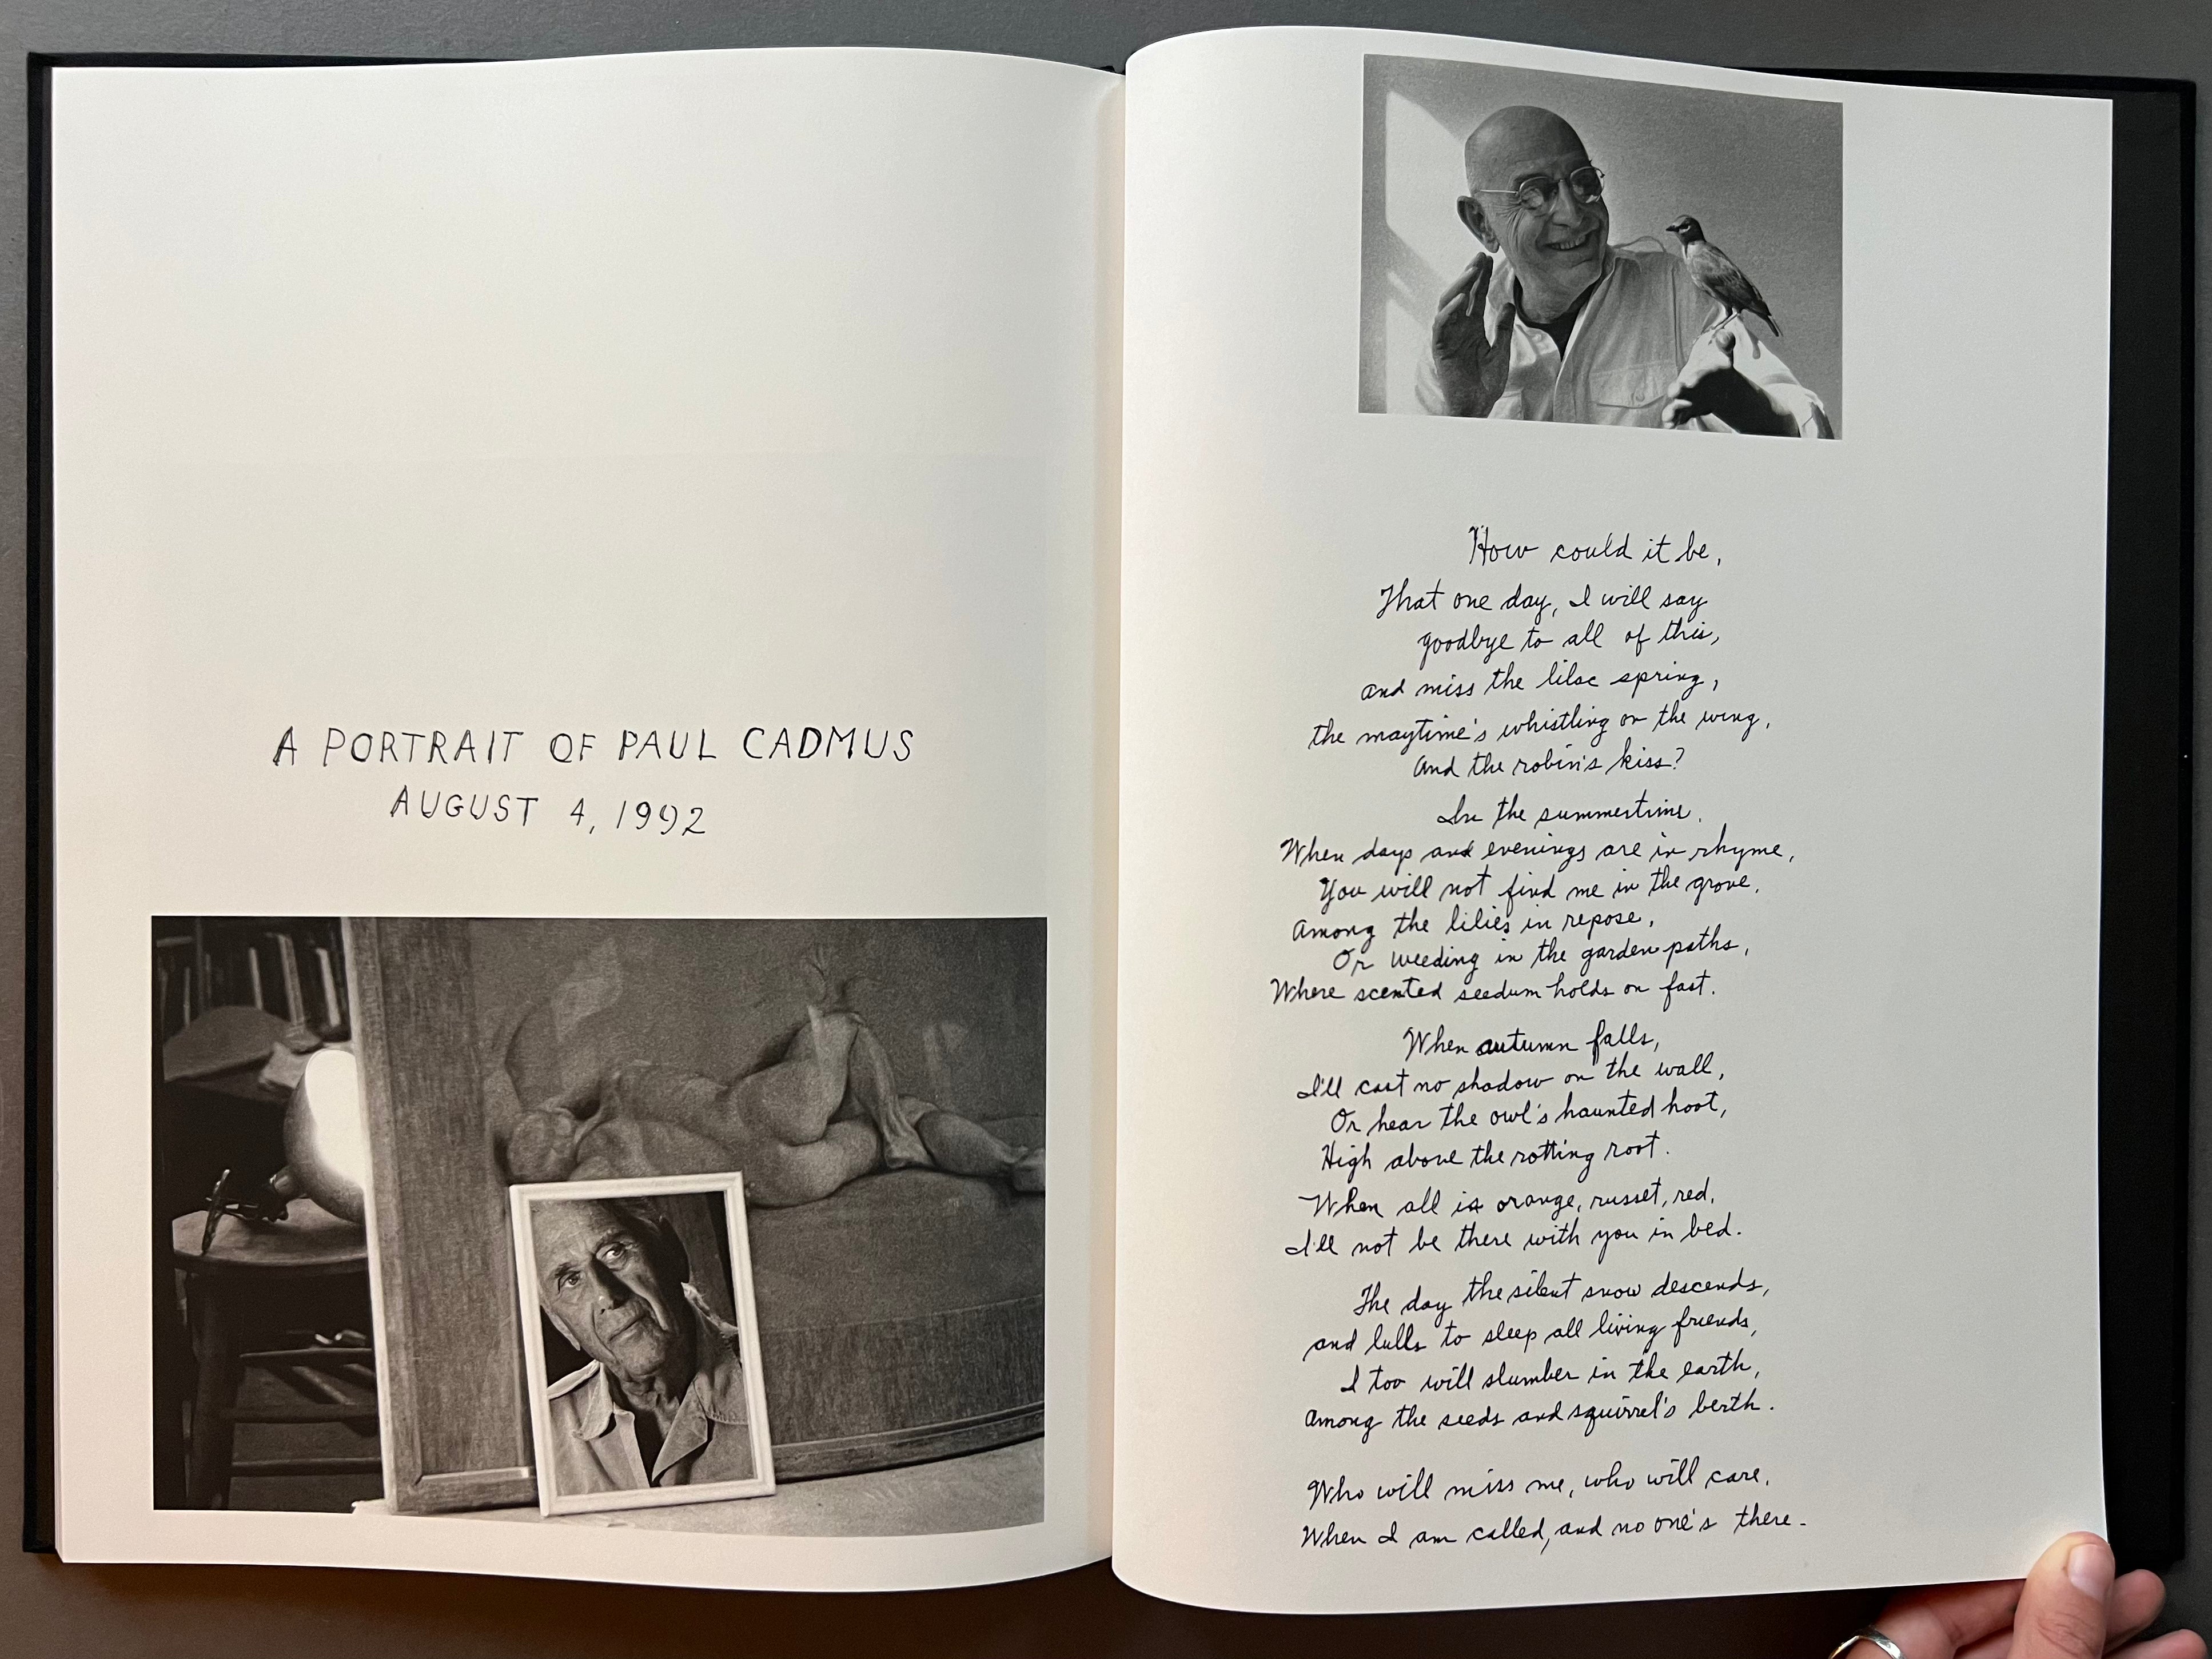 A PORTRAIT OF PAUL CADMUS
AUGUST 4, 1992
How could it be,
That one day, I will say
goodbye to all of this,
and miss the lilac spring,
the maytime's whistling on the wing,
And the robin's kiss?
In the summertime.
When days and evenings are in rhyme,
You will not find me in the grove,
Among the lilies in repose,
Or weeding in the garden paths,
Where scented seedum holds on fast.
When autumn falls,
I'll cast no shadow on the wall,
Or hear the owl's haunted hoot,
High above the rotting root.
When all is orange, russet, red,
I'll not be there with you in bed.
The day the silent snow descends,
and lulls to sleep all living friends,
I too will slumber in the earth,
Among the seeds and squirrel's berth.
Who will miss me, who will care,
When I am called, and no one's there-